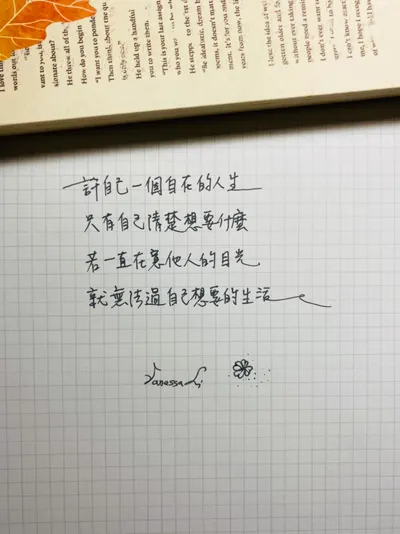 I love this
words out
vant to you, is
sionate about?"
He threw all of th
How do you begin
"I want you to ponde
Then think about me qu
He hold up a handful
you to write them.
"This is your last assign
who you w
He steppe
to the
"Be idealistic, dream b
seems, it doesn't matt
ment. It's for you and
years from now, the
I love the idea of w
gotten older and
without ever taking
people need a remi
I don't ever want
I can't know exact
me, I hope I recog
許自己一個自在的人生
只有自己清楚想要什麼
若一直在意他人的目光
就無法過自己想要的生活
Vanessa Li